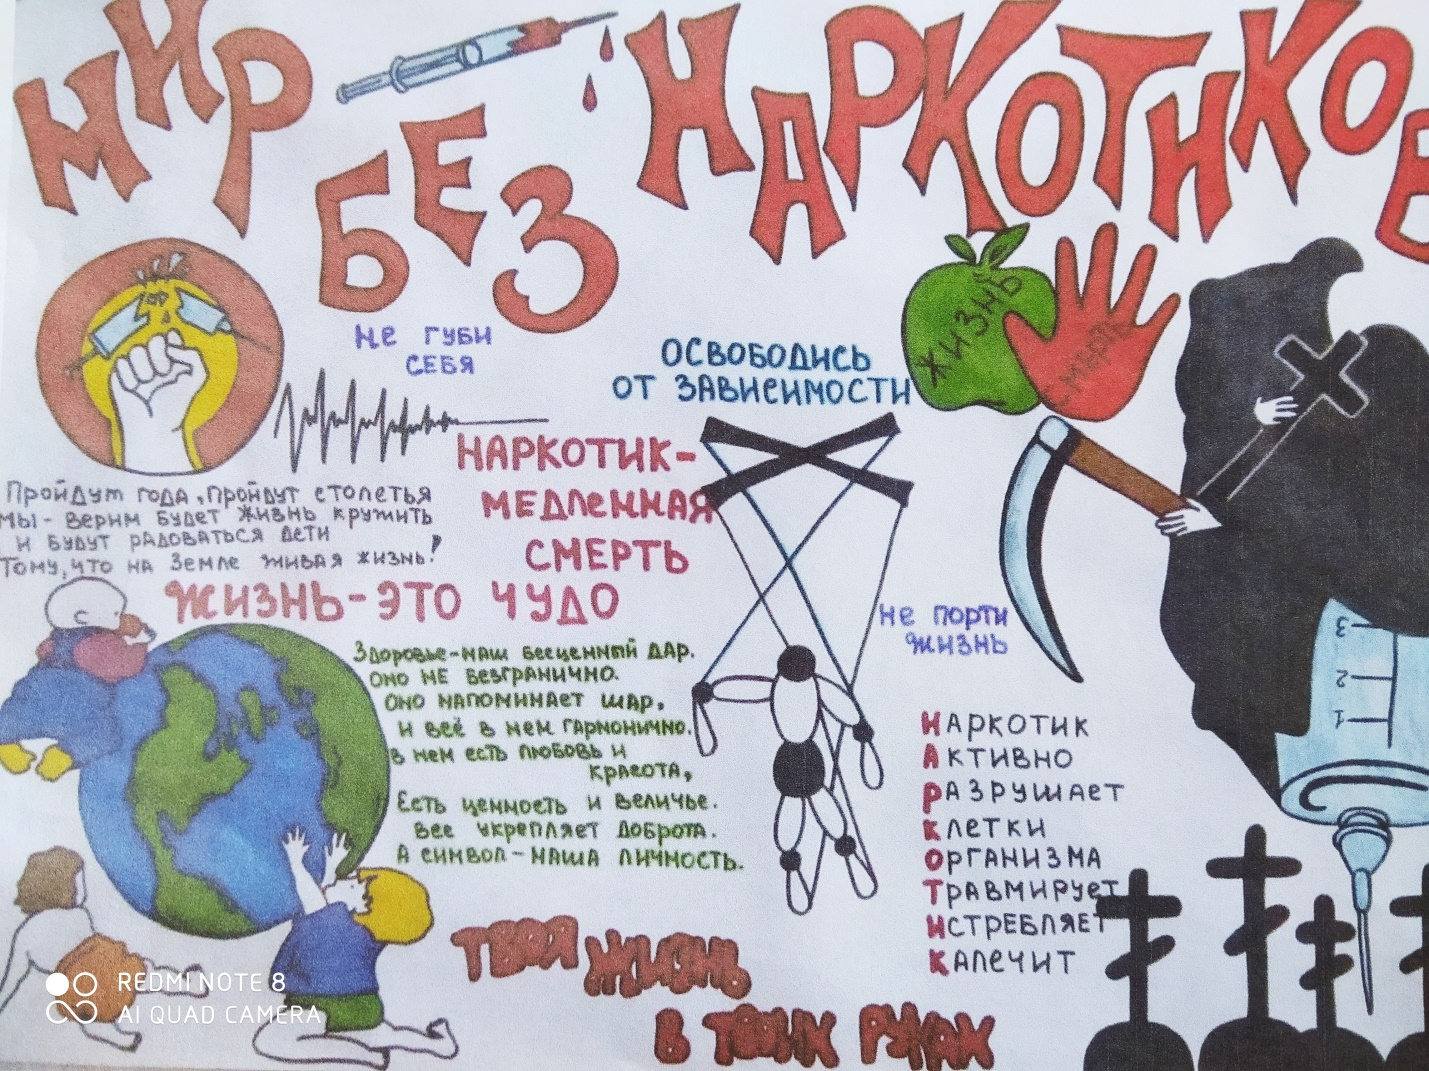 МИР БЕЗ НАРКОТИКОВ
НЕ ГУБИ
СЕБЯ
ОСВОБОДИСЬ
ОТ ЗАВИСИМОСТИ
ЖИЗНЬ
СМЕРТЬ
НАРКОТИК-
МЕДЛЕННАЯ
СМЕРТЬ
Пройдут года, пройдут столетья
Мы - верим будет жизнь кружить
и будут радоваться дети
Тому, что на Земле живая жизнь!
ЖИЗНЬ-ЭТО ЧУДО
Здоровье-наш бесценный дар.
Оно не безгранично.
Оно напоминает шар,
И всё в нем гармонично.
В нем есть любовь и
красота,
Есть ценность и величье.
Все укрепляет доброта.
А символ-наша личность.
НЕ ПОРТИ
ЖИЗНЬ
НАРКОТИК
АКТИВНО
РАЗРУШАЕТ
КЛЕТКИ
ОРГАНИЗМА
ТРАВМИРУЕТ
ИСТРЕБЛЯЕТ
КАЛЕЧИТ
3
2
1
ТВОЯ ЖИЗНЬ
В ТВОИХ РУКАХ
REDMI NOTE 8
AI QUAD CAMERA